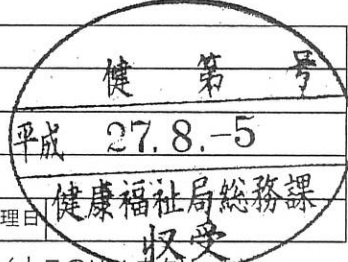 健 第 号
平成 27.8.-5
理日 健康福祉局総務課
収受